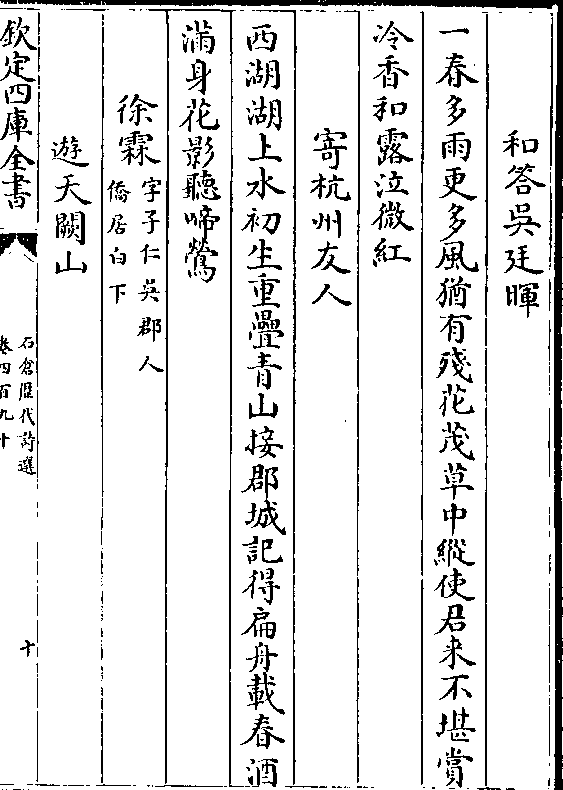 和答吳廷暉
一春多雨更多風猶有殘花茂草中縱使君来不堪賞
冷香和露泣微紅
寄杭州友人
西湖湖上水初生重疊青山接郡城記得扁舟載春酒
滿身花影聽啼鶯
徐霖字子仁吳郡人
僑居白下
遊天闕山
欽定四庫全書
石倉歴代詩選
卷四百九十
十